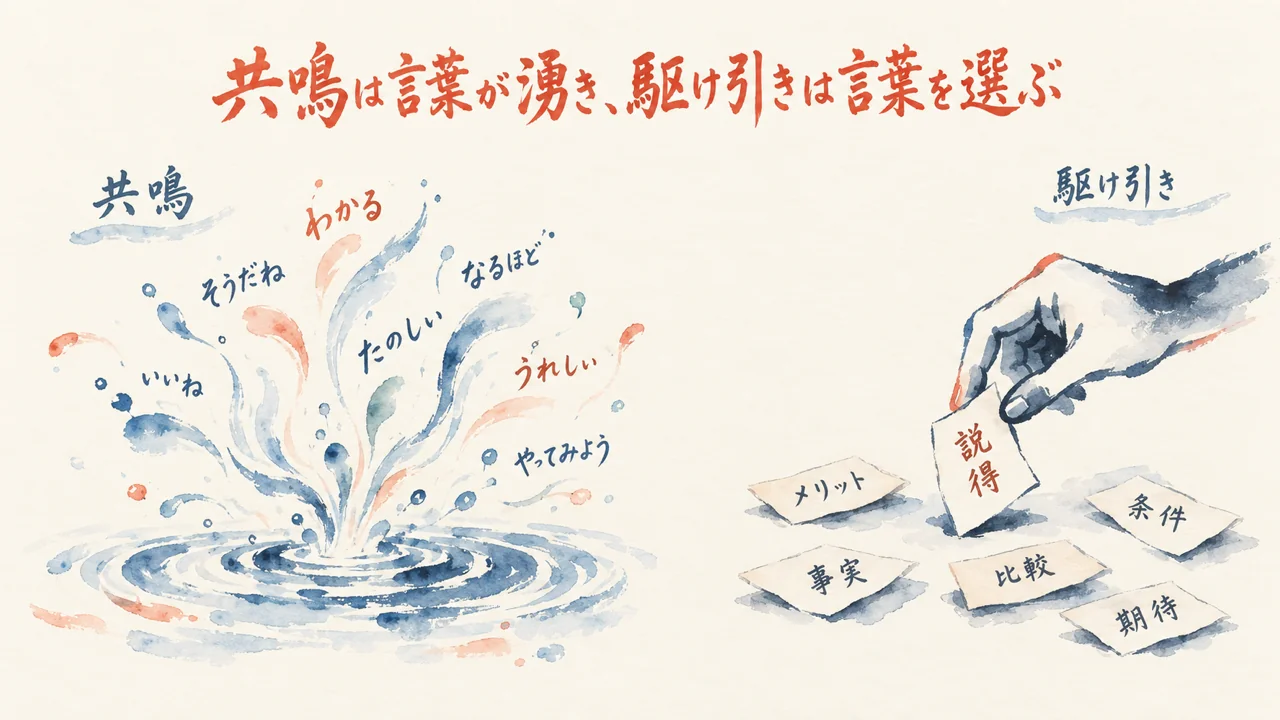 共鳴は言葉が湧き、駆け引きは言葉を選ぶ
共鳴
わかる
そうだね
なるほど
たのしい
いいね
うれしい
やってみよう
駆け引き
説得
メリット
条件
事実
比較
期待